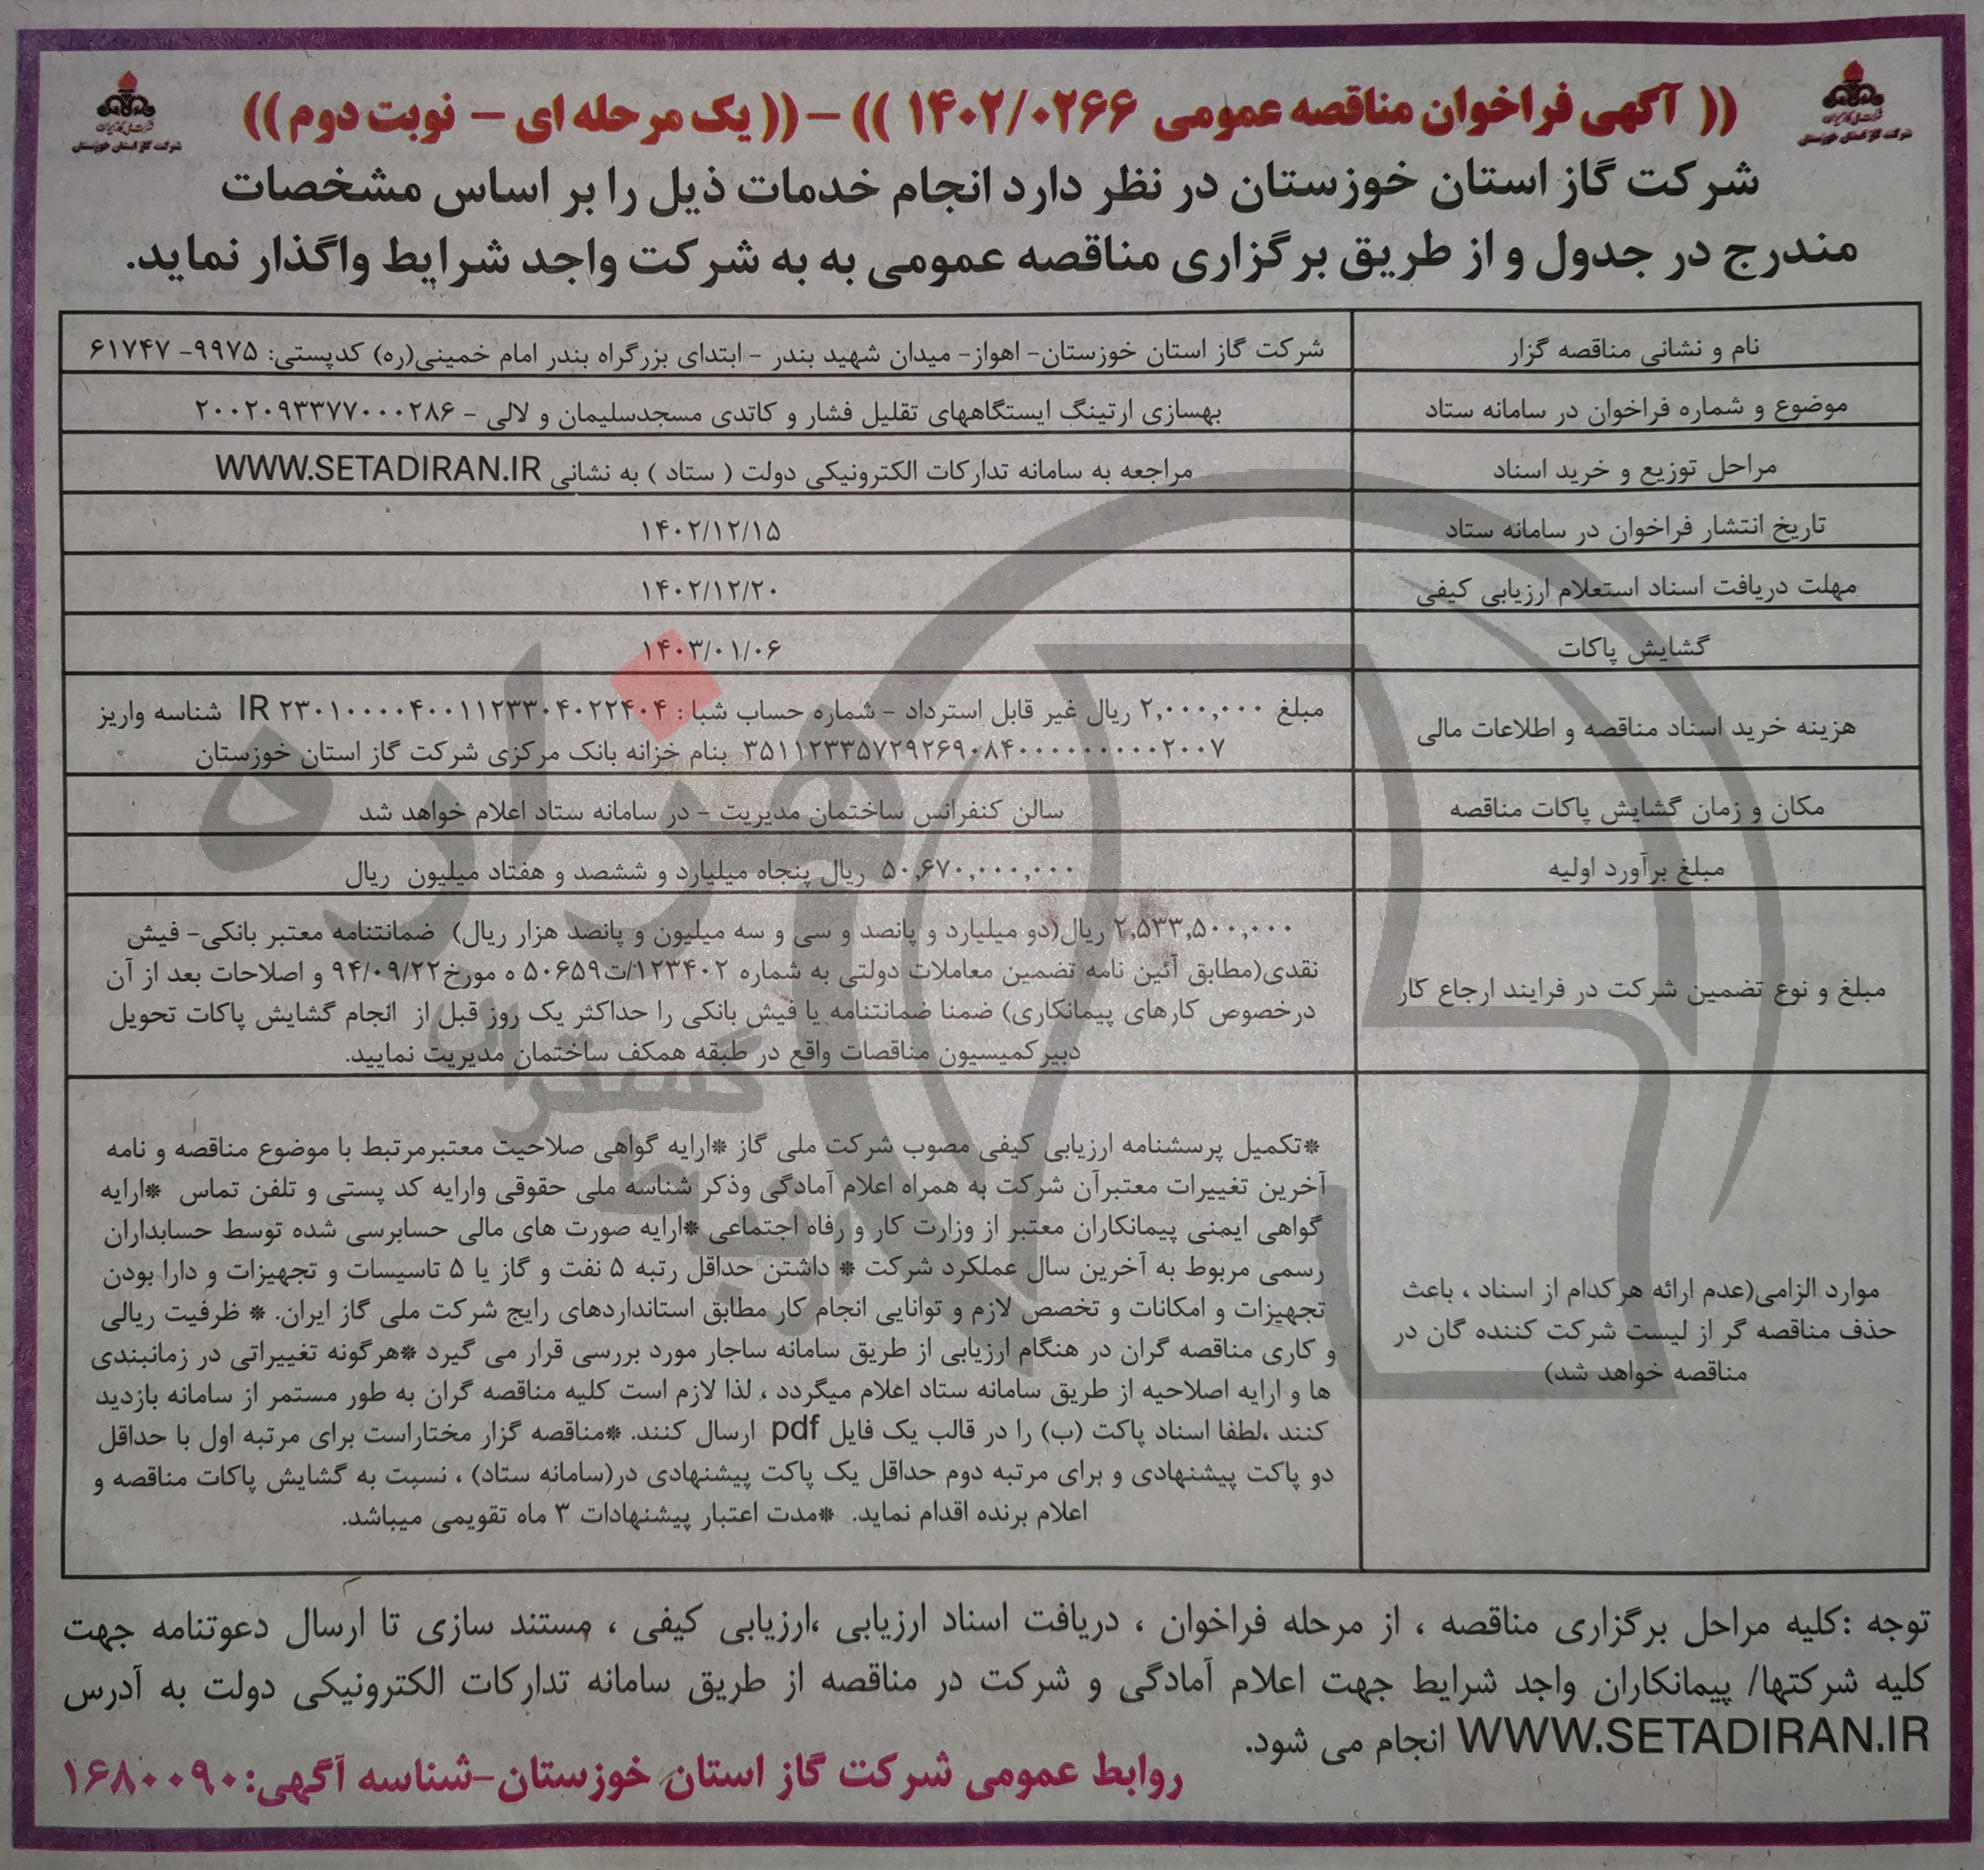 (( آگهی فراخوان مناقصه عمومی ۱۴۰۲/۰۲۶۶ )) – (( یک مرحله ای – نوبت دوم ))
شرکت گاز استان خوزستان
شرکت گاز استان خوزستان
شرکت گاز استان خوزستان در نظر دارد انجام خدمات ذیل را بر اساس مشخصات
مندرج در جدول و از طریق برگزاری مناقصه عمومی به به شرکت واجد شرایط واگذار نماید.
نام و نشانی مناقصه گزار
شرکت گاز استان خوزستان- اهواز- میدان شهید بندر - ابتدای بزرگراه بندر امام خمینی(ره) کدپستی: ۹۹۷۵- ۶۱۷۴۷
موضوع و شماره فراخوان در سامانه ستاد
بهسازی ارتینگ ایستگاههای تقلیل فشار و کاتدی مسجدسلیمان و لالی - ۲۰۰۲۰۹۳۳۷۷۰۰۰۲۸۶
مراحل توزیع و خرید اسناد
مراجعه به سامانه تدارکات الکترونیکی دولت ( ستاد ) به نشانی WWW.SETADIRAN.IR
تاریخ انتشار فراخوان در سامانه ستاد
۱۴۰۲/۱۲/۱۵
مهلت دریافت اسناد استعلام ارزیابی کیفی
۱۴۰۲/۱۲/۲۰
گشایش پاکات
۱۴۰۳/۰۱/۰۶
هزینه خرید اسناد مناقصه و اطلاعات مالی
مبلغ ۲,۰۰۰,۰۰۰ ریال غیر قابل استرداد - شماره حساب شبا: IR ۲۳۰۱۰۰۰۰۴۰۰۱۱۲۳۳۰۴۰۲۲۴۰۴ شناسه واریز
۳۵۱۱۲۳۳۵۷۲۹۲۶۹۰۸۴۰۰۰۰۰۰۰۰۰۰۲۰۰۷ بنام خزانه بانک مرکزی شرکت گاز استان خوزستان
مکان و زمان گشایش پاکات مناقصه
سالن کنفرانس ساختمان مدیریت - در سامانه ستاد اعلام خواهد شد
مبلغ برآورد اولیه
۵۰,۶۷۰,۰۰۰,۰۰۰ ریال پنجاه میلیارد و ششصد و هفتاد میلیون ریال
مبلغ و نوع تضمین شرکت در فرایند ارجاع کار
۲,۵۳۳,۵۰۰,۰۰۰ ریال(دو میلیارد و پانصد و سی و سه میلیون و پانصد هزار ریال) ضمانتنامه معتبر بانکی- فیش
نقدی(مطابق آئین نامه تضمین معاملات دولتی به شماره ۱۲۳۴۰۲/ت۵۰۶۵۹ ه مورخ۹۴/۰۹/۲۲ و اصلاحات بعد از آن
درخصوص کارهای پیمانکاری) ضمنا ضمانتنامه یا فیش بانکی را حداکثر یک روز قبل از انجام گشایش پاکات تحویل
دبیرکمیسیون مناقصات واقع در طبقه همکف ساختمان مدیریت نمایید.
موارد الزامی(عدم ارائه هرکدام از اسناد ، باعث
حذف مناقصه گر از لیست شرکت کننده گان در
مناقصه خواهد شد)
*تکمیل پرسشنامه ارزیابی کیفی مصوب شرکت ملی گاز *ارایه گواهی صلاحیت معتبرمرتبط با موضوع مناقصه و نامه
آخرین تغییرات معتبرآن شرکت به همراه اعلام آمادگی وذکر شناسه ملی حقوقی وارایه کد پستی و تلفن تماس *ارایه
گواهی ایمنی پیمانکاران معتبر از وزارت کار و رفاه اجتماعی *ارایه صورت های مالی حسابرسی شده توسط حسابداران
رسمی مربوط به آخرین سال عملکرد شرکت * داشتن حداقل رتبه ۵ نفت و گاز یا ۵ تاسیسات و تجهیزات و دارا بودن
تجهیزات و امکانات و تخصص لازم و توانایی انجام کار مطابق استانداردهای رایج شرکت ملی گاز ایران. * ظرفیت ریالی
و کاری مناقصه گران در هنگام ارزیابی از طریق سامانه ساجار مورد بررسی قرار می گیرد *هرگونه تغییراتی در زمانبندی
ها و ارایه اصلاحیه از طریق سامانه ستاد اعلام میگردد ، لذا لازم است کلیه مناقصه گران به طور مستمر از سامانه بازدید
کنند ،لطفا اسناد پاکت (ب) را در قالب یک فایل pdf ارسال کنند. *مناقصه گزار مختاراست برای مرتبه اول با حداقل
دو پاکت پیشنهادی و برای مرتبه دوم حداقل یک پاکت پیشنهادی در(سامانه ستاد) ، نسبت به گشایش پاکات مناقصه و
اعلام برنده اقدام نماید. *مدت اعتبار پیشنهادات ۳ ماه تقویمی میباشد.
توجه :کلیه مراحل برگزاری مناقصه ، از مرحله فراخوان ، دریافت اسناد ارزیابی ،ارزیابی کیفی ، مستند سازی تا ارسال دعوتنامه جهت
کلیه شرکتها/ پیمانکاران واجد شرایط جهت اعلام آمادگی و شرکت در مناقصه از طریق سامانه تدارکات الکترونیکی دولت به آدرس
WWW.SETADIRAN.IR انجام می شود.
روابط عمومی شرکت گاز استان خوزستان-شناسه آگهی:۱۶۸۰۰۹۰